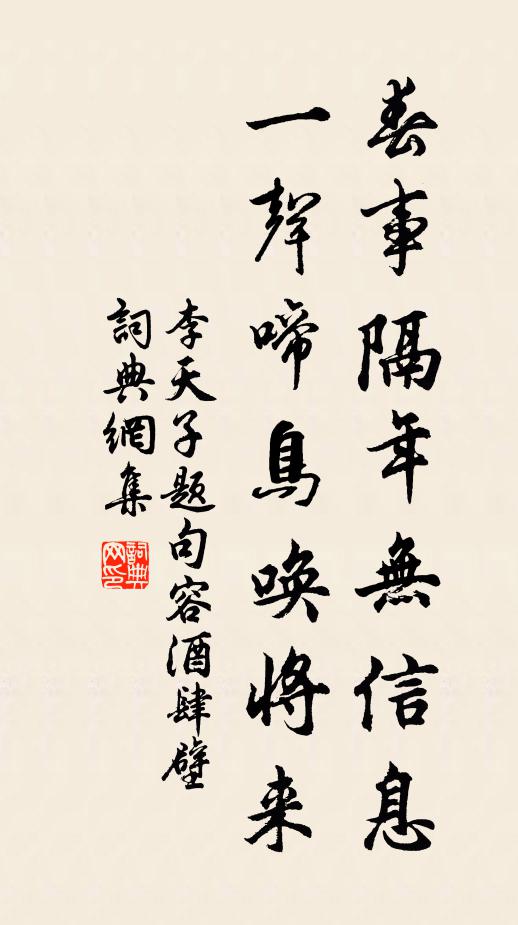 春事隔年無信息
一聲啼鳥喚將来
李天子題句容酒肆壁
詞典網集
詞典
网印